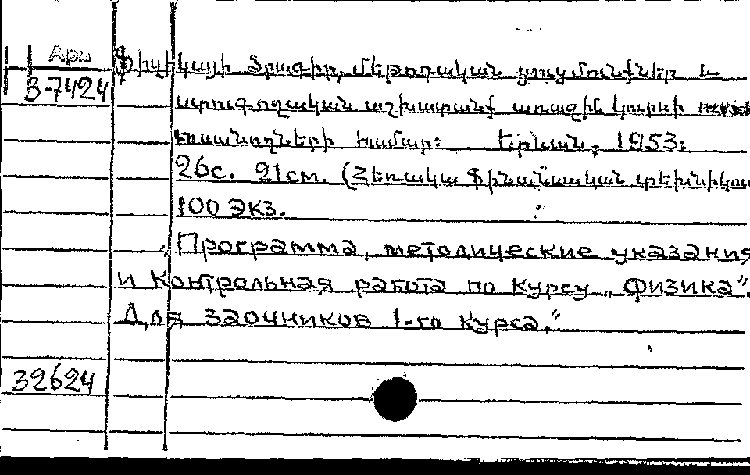 Арм
3-7424
Ֆիզիկայի ծրագիր, մեթոդական ցուցմունքներ և
ստուգողական աշխատանք առաջին կուրսի
ուսանողների համար: Երևան, 1953:
26с. 21см. (Հեռակա Ֆինանսական տեխնիկու
100 экз.
„Программа, методические указания
и контрольная работа по курсу „Физика“.
Для заочников 1-го курса.“
32624